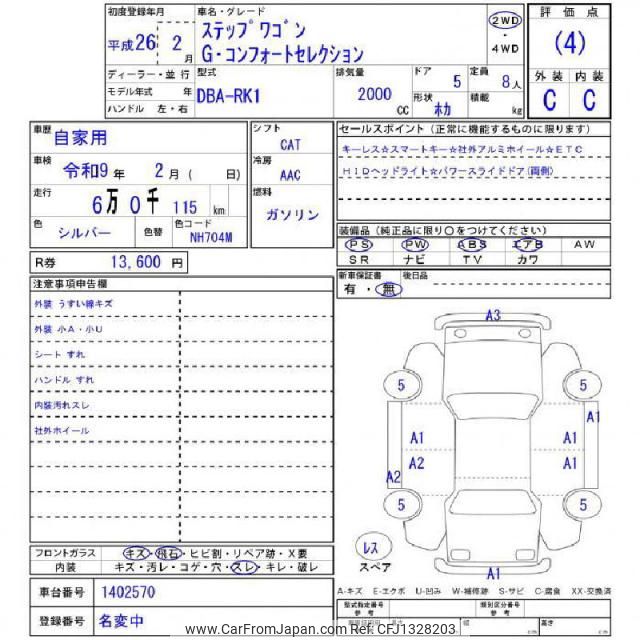 初度登録年月
平成26 2 月
車名・グレード
ステップワゴン
G・コンフォートセレクション
2WD
・
4WD
評価点
(4)
外装 内装
C C
ディーラー・並行
モデル年式 年
ハンドル 左・右
型式
DBA-RK1
排気量
2000
CC
ドア
5
定員
8人
形状
ホカ
積載
kg
車歴
自家用
車検
令和9年 2月( 日)
走行
6万0千115 km
色
シルバー
色替
色コード
NH704M
シフト
CAT
冷房
AAC
燃料
ガソリン
セールスポイント(正常に機能するものに限ります)
キーレス☆スマートキー☆社外アルミホイール☆ETC
HIDヘッドライト☆パワースライドドア(両側)
装備品(純正品に限り○をつけてください)
PS PW ABS エアB AW
SR ナビ TV カワ
新車保証書
有・無
後日品
R券 13,600 円
注意事項申告欄
外装 うすい線キズ
外装 小A・小U
シート すれ
ハンドル すれ
内装汚れスレ
社外ホイール
フロントガラス キズ・飛石・ヒビ割・リペア跡・X要
内装 キズ・汚レ・コゲ・穴・スレ・キレ・破レ
車台番号 1402570
登録番号 名変中
A3
5 5
A1
A1 A1
A2 A1
A2
5 5
A1
レス
スペア
A-キズ E-エクボ U-凹み W-補修跡 S-サビ C-腐食 XX-交換済
型式指定番号
類別区分番号
長さ
幅
高さ
www.CarFromJapan.com Ref:CFJ1328203